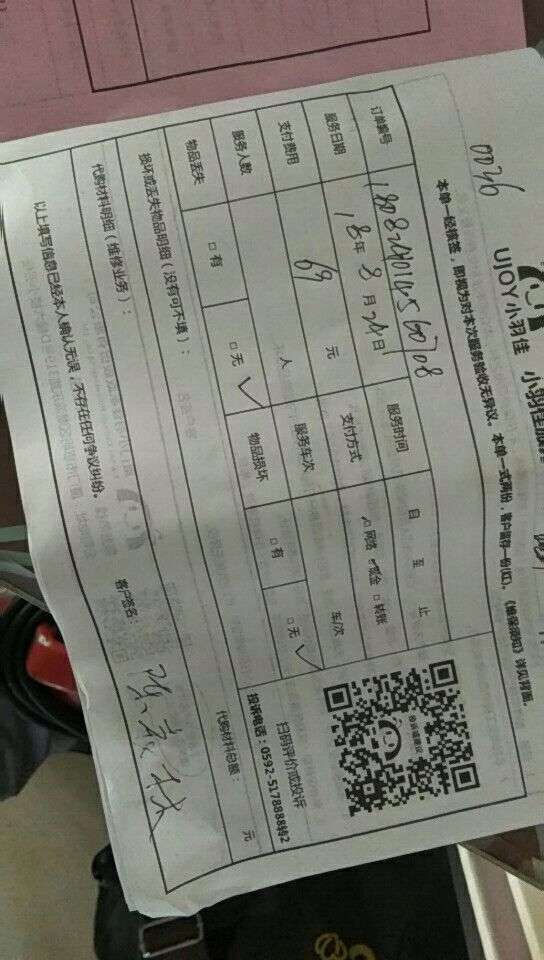 UJOY小羽佳 小羽佳
0036
本单一经核签，即视为对本次服务验收无异议。本单一式两份，客户留存一份(红)。《维保须知》详见背面。
订单编号 服务时间 自 至 止
服务日期 18年 8月 24日 支付方式 □网络 □现金 □转账
支付费用 69 元 服务车次 车/次
服务人数 人
物品丢失 □有 □无 ✓ 物品损坏 □有 □无 ✓
扫码评价或投诉
投诉电话：0592-5178888转2
损坏或丢失物品明细（没有可不填）：
代购材料明细（维修业务）： 代购材料总额： 元
以上填写信息已经本人确认无误，不存在任何争议纠纷。 客户签名：